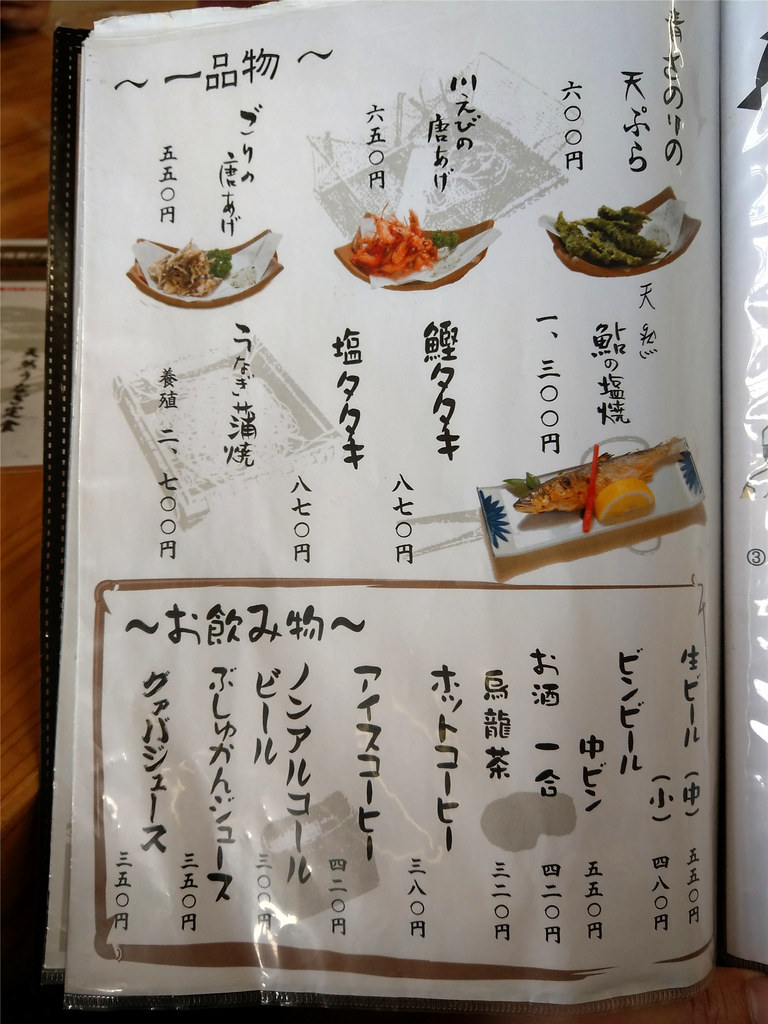 ～一品物～
青さのりの
天ぷら
六〇〇円
川えびの
唐あげ
六五〇円
ごりの
唐あげ
五五〇円
天然
鮎の塩焼
一、三〇〇円
鰹タタキ
八七〇円
塩タタキ
八七〇円
うなぎ蒲焼
養殖 二、七〇〇円
～お飲み物～
生ビール（中）五五〇円
（小）四八〇円
ビンビール
中ビン 五五〇円
お酒 一合 四二〇円
烏龍茶 三二〇円
ホットコーヒー 三八〇円
アイスコーヒー 四二〇円
ノンアルコール
ビール 三〇〇円
ぶしゅかんジュース 三五〇円
グァバジュース 三五〇円
③